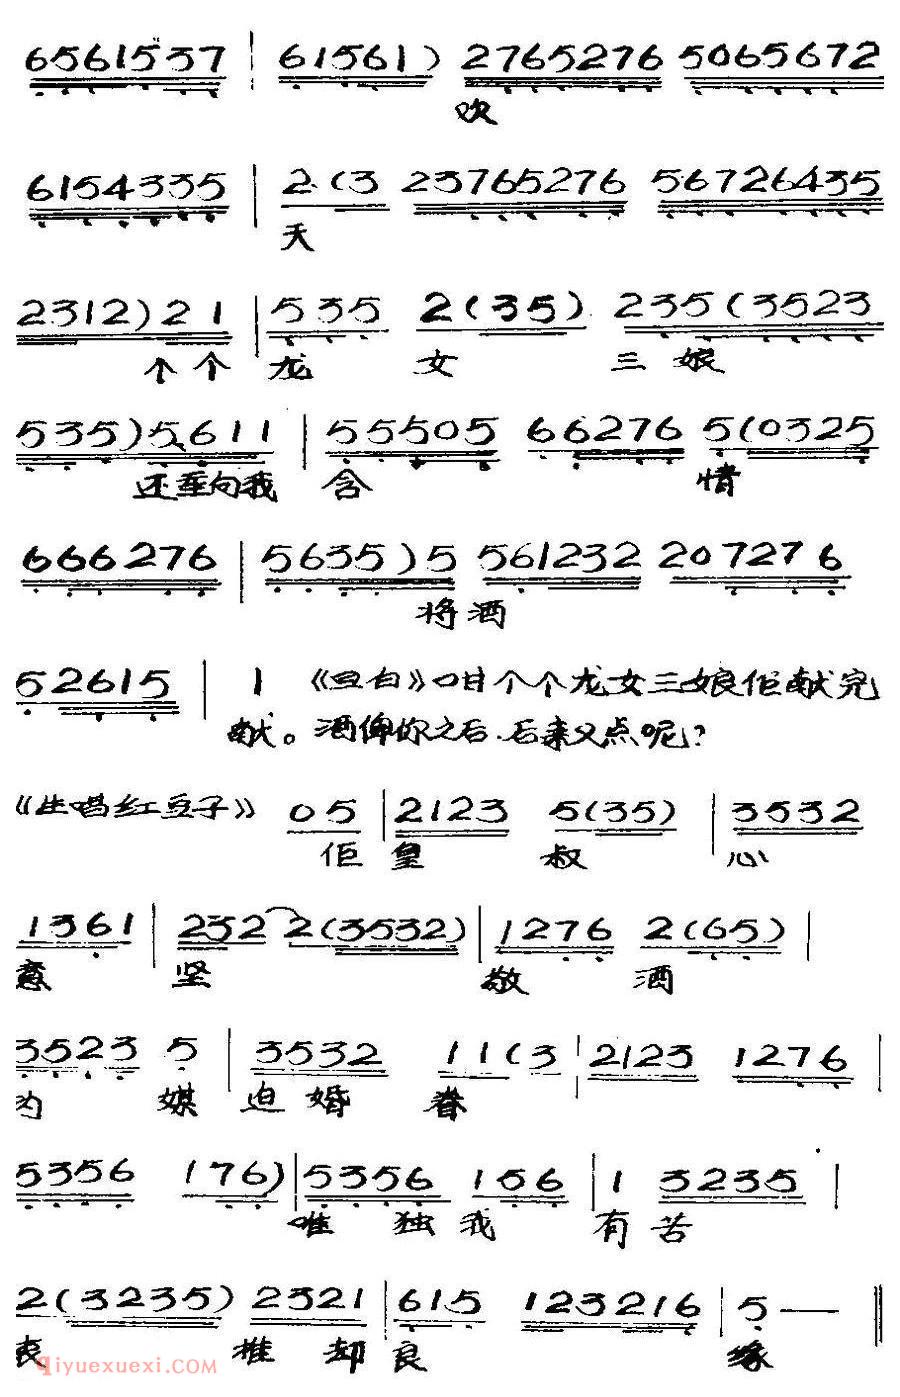 6561537 | 61561) 2765276 5065672
欢
6154335 | 2·(3 23765276 56726435
天
2312)21 | 535 2(35) 235(3523
个个 龙 女 三 娘
535)5.611 | 55505 66276 5(0325
还垂向我 含 情
666276 | 5635)5 561232 207276
将酒
52615 | 1 《旦白》咁个个龙女三娘佢献完
献。酒俾你之后.后来又点呢?
《生唱红豆子》 05 | 2123 5(35) | 3532
佢皇 叔 心
1361 | 232 2(3532) | 1276 2(65) |
意 坚 敬 酒
3523 5 | 3532 11(3 | 2123 1276 |
为 媒 迫婚 眷
5356 176) | 5356 156 | 1 3235 |
唯 独 我 有 苦
2(3235) 2321 | 615 123216 | 5 — ‖
衷 推 却 良 缘
Qiyuexuexi.com